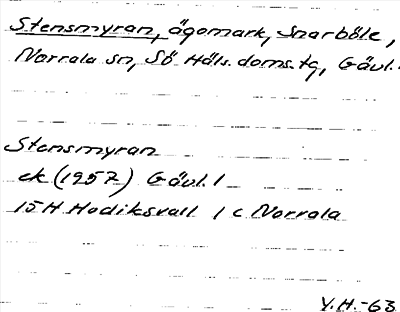 Stensmyran, ägomark, Snarböle,
Norrala sn, Sö Häls. doms.tg, Gävl.
Stensmyran
ek (1957) Gävl. l
15H Hudiksvall 1 c Norrala
Y.H.-63